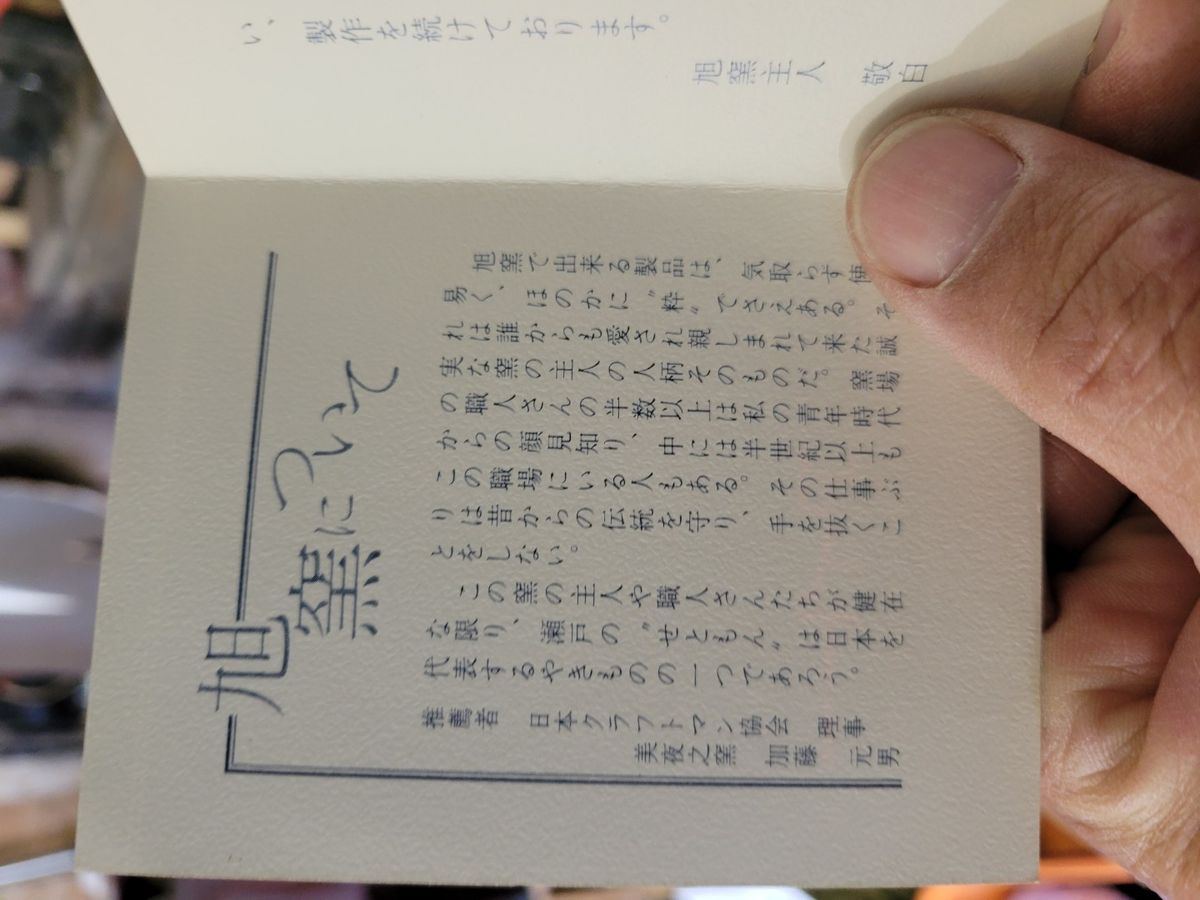 い、製作を続けております。
旭窯主人　敬白
旭窯について
旭窯で出来る製品は、気取らず使
易く、ほのかに〝粋〟でさえある。そ
れは誰からも愛され親しまれて来た誠
実な窯の主人の人柄そのものだ。窯場
の職人さんの半数以上は私の青年時代
からの顔見知り、中には半世紀以上も
この職場にいる人もある。その仕事ぶ
りは昔からの伝統を守り、手を抜くこ
とをしない。
この窯の主人や職人さんたちが健在
な限り、瀬戸の〝せともん〟は日本を
代表するやきものの一つであろう。
推薦者　日本クラフトマン協会　理事
美夜之窯　加藤　元男